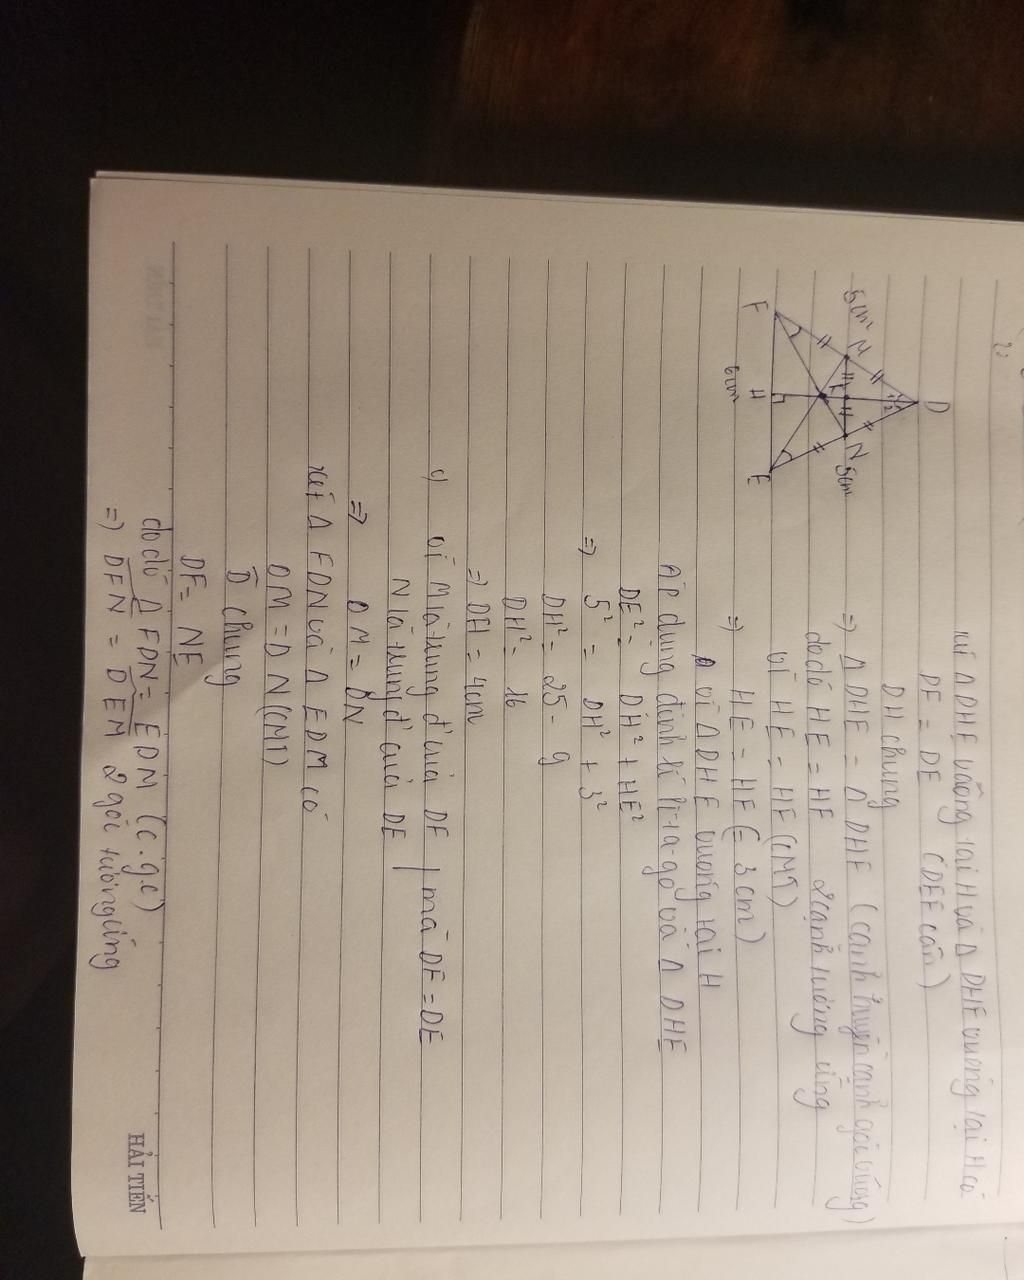 2)
D
M
N
5cm
5cm
K
F
H
E
6cm
xét Δ DHE vuông tại H và Δ DHF vuông tại H có
DF = DE (DEF cân)
DH chung
=> Δ DHE = Δ DHF (cạnh huyền cạnh góc vuông)
do đó HE = HF 2 cạnh tương ứng
vì HE = HF (CMT)
=> HE = HF (= 3 cm)
vì Δ DHE vuông tại H
Áp dụng định lí Pi-ta-go và Δ DHE
DE² = DH² + HE²
=> 5² = DH² + 3²
DH² = 25 - 9
DH² = 16
=> DH = 4cm
c) vì M là trung đ' của DF | mà DF = DE
N là trung đ' của DE
=> DM = DN
xét Δ FDN và Δ EDM có
DM = DN (CMT)
D̂ chung
DF = NE
do đó Δ FDN = EDM (c.g.c)
=> DFN = DEM 2 góc tương ứng
HẢI TIẾN